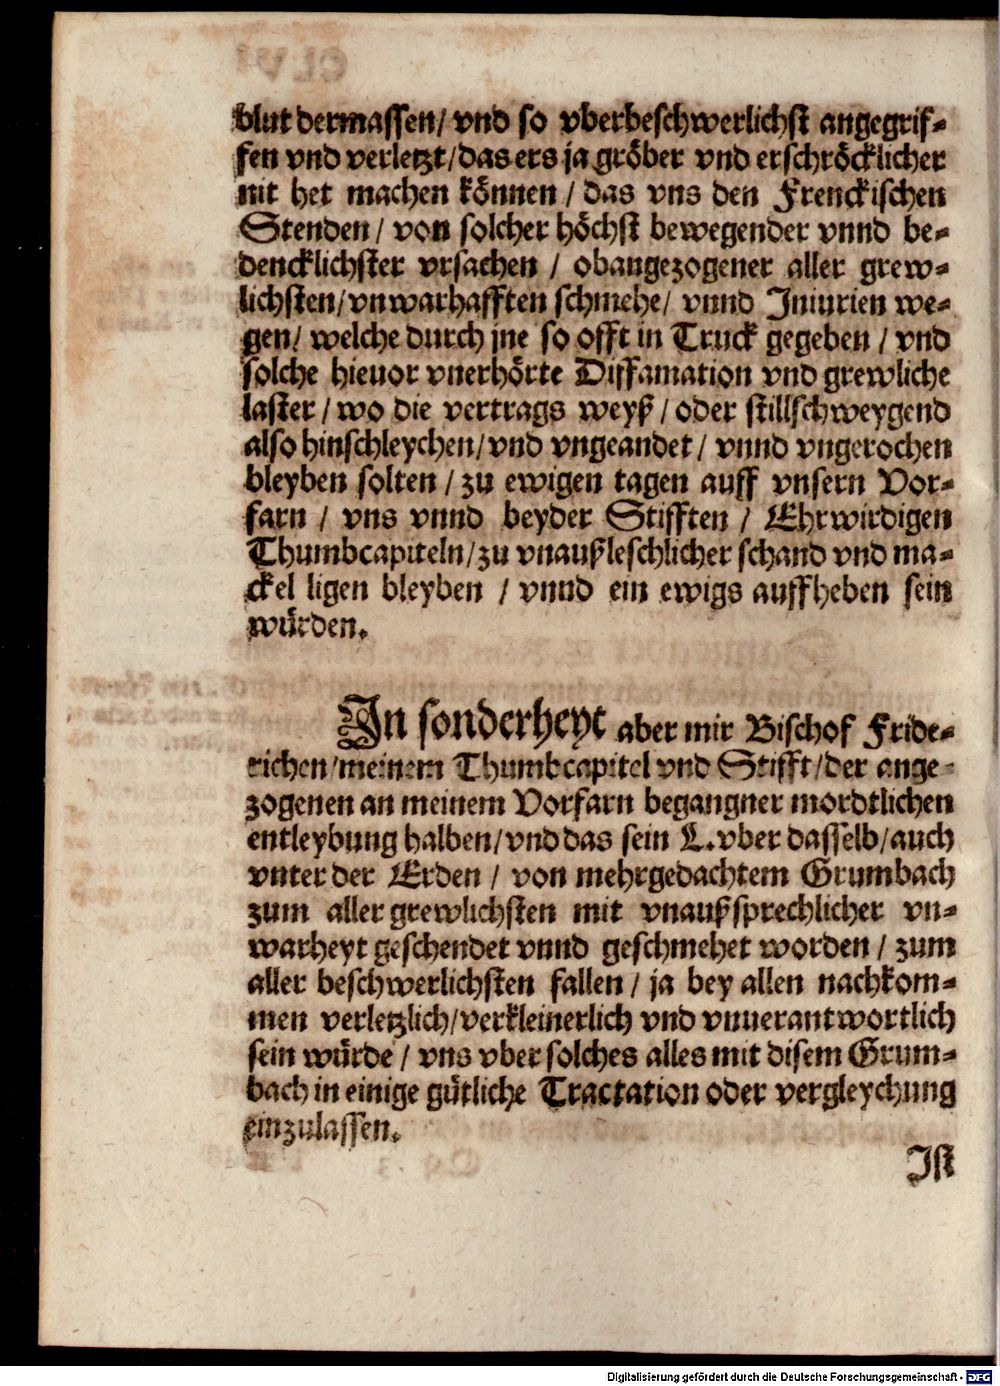 blut dermassen / vnd so vberbeschwerlichst angegrif-
fen vnd verletzt / das ers ja gröber vnd erschröcklicher
nit het machen können / das vns den Frenckischen
Stenden / von solcher höchst bewegender vnnd be-
dencklichster vrsachen / obangezogener aller grew-
lichsten / vnwarhafften schmehe / vnnd Iniurien we-
gen / welche durch jne so offt in Truck gegeben / vnd
solche hieuor vnerhörte Diffamation vnd grewliche
laster / wo die vertrags weyß / oder stillschweygend
also hinschleychen / vnd vngeandet / vnnd vngerochen
bleyben solten / zu ewigen tagen auff vnsern Vor-
farn / vns vnnd beyder Stifften / Ehrwirdigen
Thumbcapiteln / zu vnaußleschlicher schand vnd ma-
ckel ligen bleyben / vnnd ein ewigs auffheben sein
würden.
In sonderheyt aber mir Bischof Fride-
richen / meinem Thumbcapitel vnd Stifft / der ange-
zogenen an meinem Vorfarn begangner mordtlichen
entleybung halben / vnd das sein L. vber dasselb / auch
vnter der Erden / von mehrgedachtem Grumbach
zum aller grewlichsten mit vnaußsprechlicher vn-
warheyt geschendet vnnd geschmehet worden / zum
aller beschwerlichsten fallen / ja bey allen nachkom-
men verletzlich / verkleinerlich vnd vnuerantwortlich
sein würde / vns vber solches alles mit disem Grum-
bach in einige gütliche Tractation oder vergleychung
einzulassen.
Ist
Digitalisierung gefördert durch die Deutsche Forschungsgemeinschaft - DFG